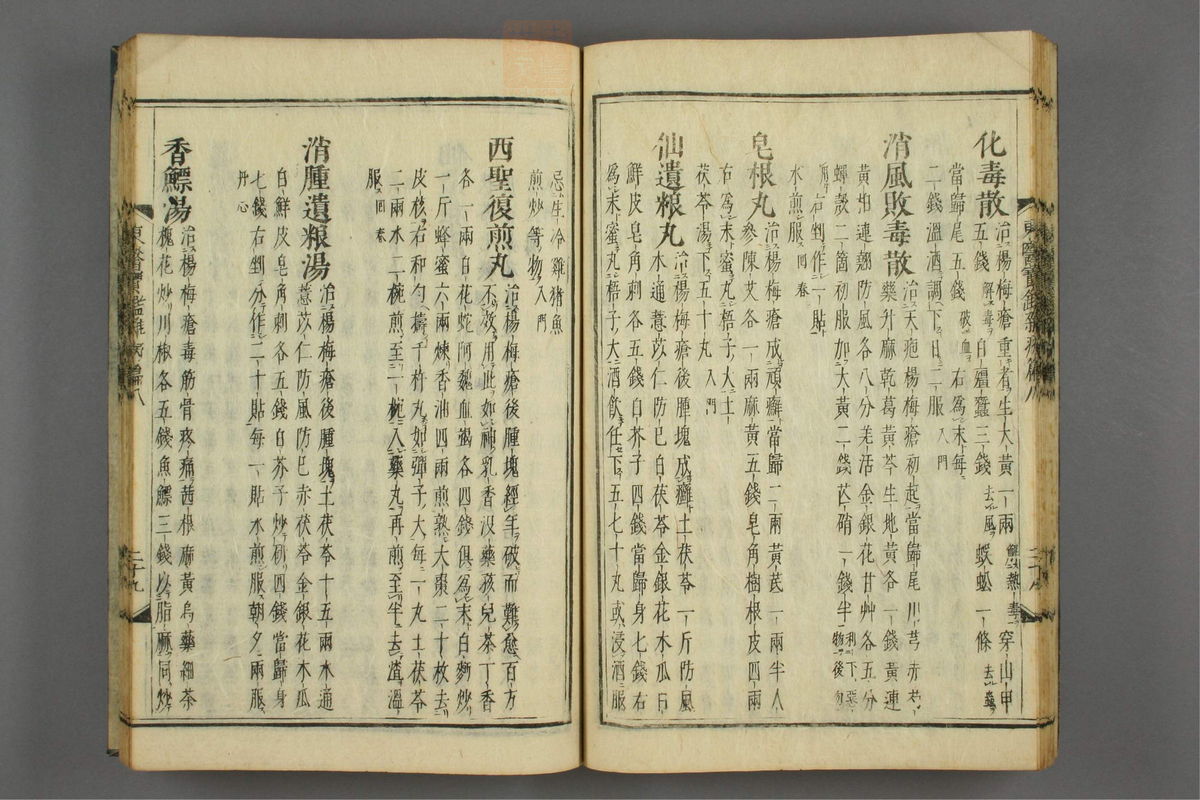 化毒散 治楊梅瘡重者生大黃一兩穿山甲
五錢解毒白殭蠶三錢去風蜈蚣一條去
當歸尾五錢破血右爲末每
二錢溫酒調下日二服入門
消風敗毒散 治天疱楊梅瘡初起當歸尾川芎赤芍
藥升麻乾葛黃芩生地黃各一錢黃連
黃柏連翹防風各八分羌活金銀花甘艸各五分
蟬殼二箇初服加大黃二錢芒硝一錢半利下惡物後勿
用右剉作一貼
水煎服回春
皂根丸 治楊梅瘡成頑癬當歸二兩黃芪一兩半人
參陳艾各一兩麻黃五錢皂角樹根皮四兩
右爲末蜜丸梧子大土
茯苓湯下五十丸入門
仙遺粮丸 治楊梅瘡後腫塊成癰土茯苓一斤防風
木通薏苡仁防己白茯苓金銀花木瓜白
鮮皮皂角刺各五錢白芥子四錢當歸身七錢右
爲末蜜丸梧子大酒飮任下五七十丸或浸酒服
忌生冷雞猪魚
煎炒等物入門
西聖復煎丸 治楊梅瘡後腫塊經年破而難愈百方
不效用此如神乳香沒藥孩兒茶丁香
各一兩白花蛇阿魏血竭各四錢俱爲末白麪炒
一斤蜂蜜六兩煉香油四兩煎熟大棗二十枚去
皮核右和勻擣千杵丸如彈子大每一丸土茯苓
二兩水二椀煎至一椀入藥丸再煎至半去渣溫
服回春
消腫遺粮湯 治楊梅瘡後腫塊土茯苓十五兩水通
薏苡仁防風防己赤茯苓金銀花木瓜
白鮮皮皂角刺各五錢白芥子炒硏四錢當歸身
七錢右剉分作二十貼每一貼水煎服朝夕兩服
丹心
香鰾湯 治楊梅瘡毒筋骨疼痛茜根麻黃烏藥細茶
槐花炒川椒各五錢魚鰾三錢以脂麻同炒
東醫寶鑑雜病篇八
二十九